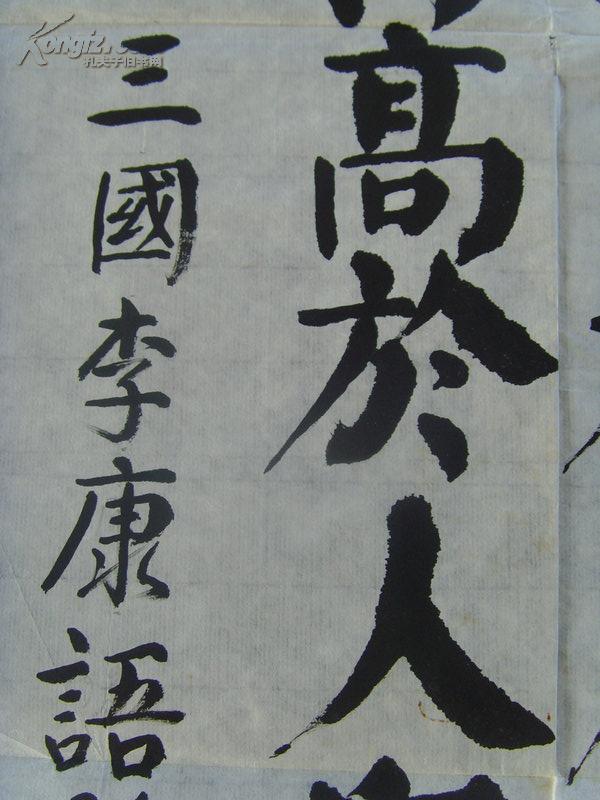 高於人
三國李康語
Kongfz.com
孔夫子旧书网